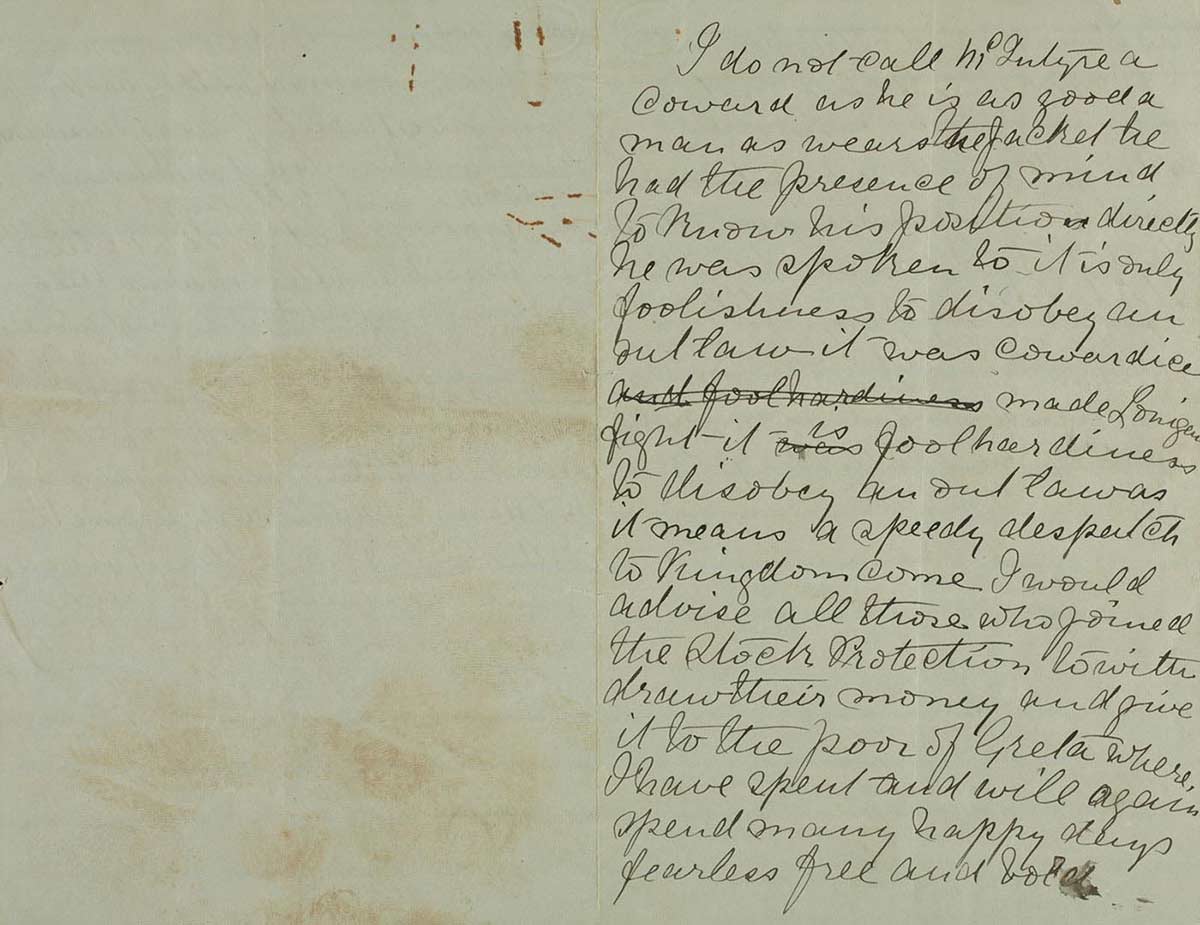 I do not call McIntyre a
coward as he is as good a
man as wears the jacket he
had the presence of mind
to know his position directly
he was spoken to it is only
foolishness to disobey an
outlaw it was cowardice
and foolhardiness made Lonigan
fight it was is foolhardiness
to disobey an outlaw as
it means a speedy despatch
to Kingdom come I would
advise all those who joined
the Stock Protection to with
draw their money and give
it to the poor of Greta where
I have spent and will again
spend many happy days
fearless free and bold